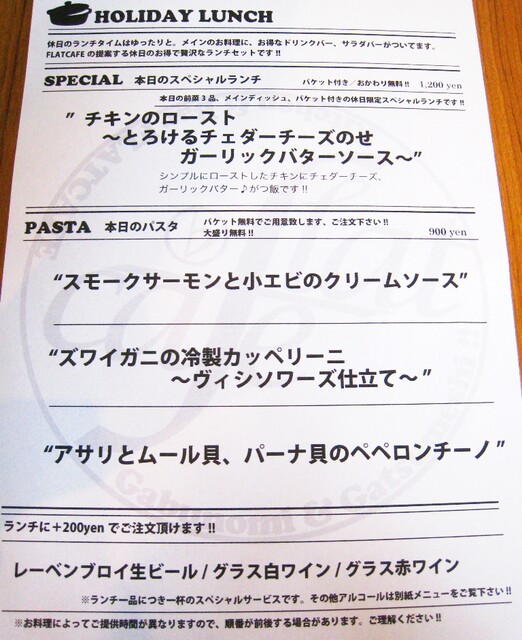 HOLIDAY LUNCH
休日のランチタイムはゆったりと。メインのお料理に、お得なドリンクバー、サラダバーがついてます。
FLATCAFEの提案する休日のお得で贅沢なランチセットです!!
SPECIAL 本日のスペシャルランチ バケット付き/おかわり無料!! 1,200 yen
本日の前菜3品、メインディッシュ、バケット付きの休日限定スペシャルランチです!!
” チキンのロースト
～とろけるチェダーチーズのせ
ガーリックバターソース～”
シンプルにローストしたチキンにチェダーチーズ、
ガーリックバター♪がつ飯です!!
PASTA 本日のパスタ バケット無料でご用意致します、ご注文下さい!!
大盛り無料!! 900 yen
“スモークサーモンと小エビのクリームソース”
“ズワイガニの冷製カッペリーニ
～ヴィシソワーズ仕立て～ ”
“アサリとムール貝、パーナ貝のペペロンチーノ ”
Gabunomi & Gats
ランチに+200yenでご注文頂けます!!
レーベンブロイ生ビール / グラス白ワイン / グラス赤ワイン
※ランチ一品につき一杯のスペシャルサービスです。その他アルコールは別紙メニューをご覧下さい!!
※お料理によってご提供時間が異なりますので、順番が前後する場合があります。ご理解ください!!